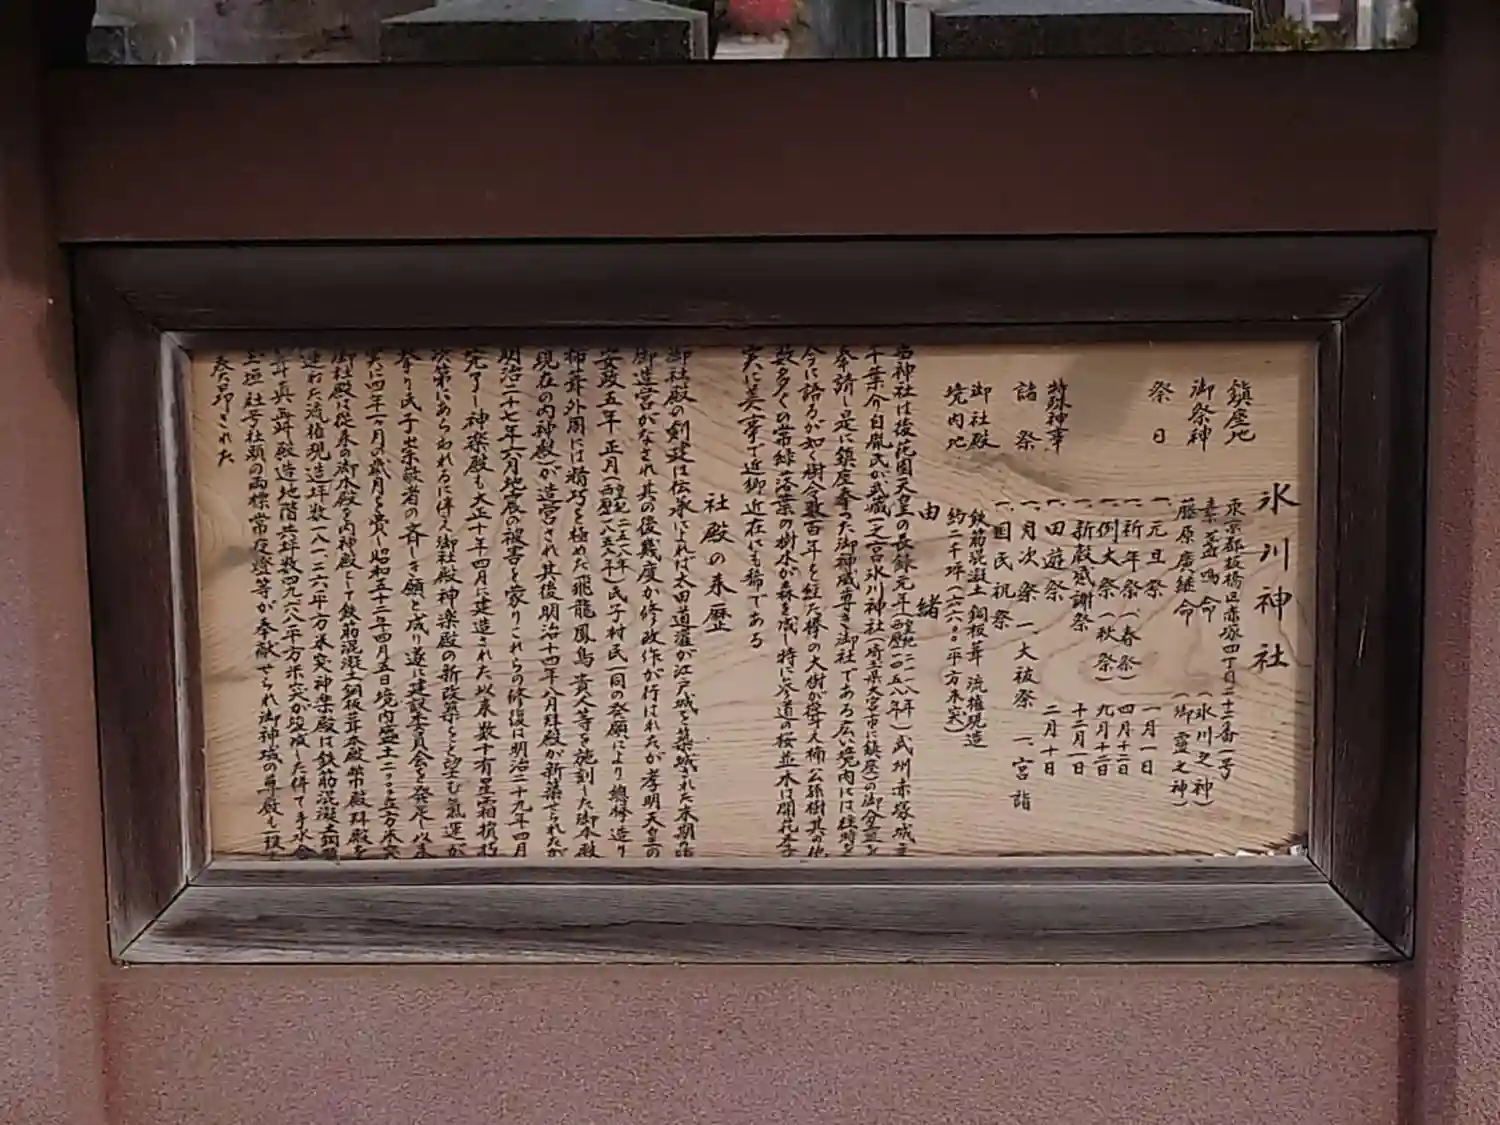 氷川神社
鎮座地 東京都板橋区赤塚四丁目二十二番一号
御祭神 素盞嗚命 (氷川之神)
藤原廣継命 (御霊之神)
祭日 一、元旦祭 一月一日
一、祈年祭(春祭) 四月十二日
一、例大祭(秋祭) 九月十二日
一、新穀感謝祭 十二月一日
特殊神事 一、田遊祭 二月十日
諸祭 一、月次祭 一、大祓祭 一、宮詣
一、国民祝祭
御社殿 鉄筋混凝土銅板葺流権現造
境内地 約二千坪(六六〇〇平方米突)
由緒
当神社は後花園天皇の長録元年(皇紀二一一八年)(西歴一四五八年)武州赤塚城主
千葉介自胤氏が武蔵一之宮氷川神社(埼玉県大宮市に鎮座)の御分霊を
奉請し是に鎮座奉った御神威尊き御社である広い境内には往時を
今に語るが如く樹令数百年を経た欅の大樹が聳え楠公孫樹其の他
数多くの常緑落葉の樹木が森を成し特に参道の桜並木は開花季
実に美事で近郷近在にも稀である
社殿の来歴
御社殿の創建は伝承によれば太田道灌が江戸城を築城された末期の
御造宮がなされ其の後幾度か修改作が行はれたが孝明天皇の
安政五年正月(皇紀二五一八年)(西歴一八五八年)氏子村民一同の発願により總欅造り
柿葺外周には精巧を極めた飛龍鳳鳥貴人等を施刻した御本殿
現在の内神殿)が造営され其後明治十四年八月拝殿が新築せられたが
明治二十七年六月地震の被害を蒙りこれらの修復は明治二十九年四月
完了し神楽殿も大正十年四月に建造された以来数十有星霜損朽
次第にあらわれるに伴え御社殿神楽殿の新改築をと望む氣運が
挙り氏子崇敬者の斉しき願と成り遂に建設委員会を発足し以来
実に四年一ヶ月の歳月を費し昭和五十二年四月五日境内盛土一二〇〇立方米突
御社殿は従来の御本殿を内神殿として鉄筋混凝土銅板葺本殿幣殿拝殿を
連ねた流権現造坪数一八一・二六平方米突神楽殿は鉄筋混凝土銅
葺真舞殿造地階共坪数四九・六八平方米突が竣成した併て手水舎
玉垣社号社頭の両標常夜燈等が奉献せられ御神域の尊厳も一段
奉た昂された